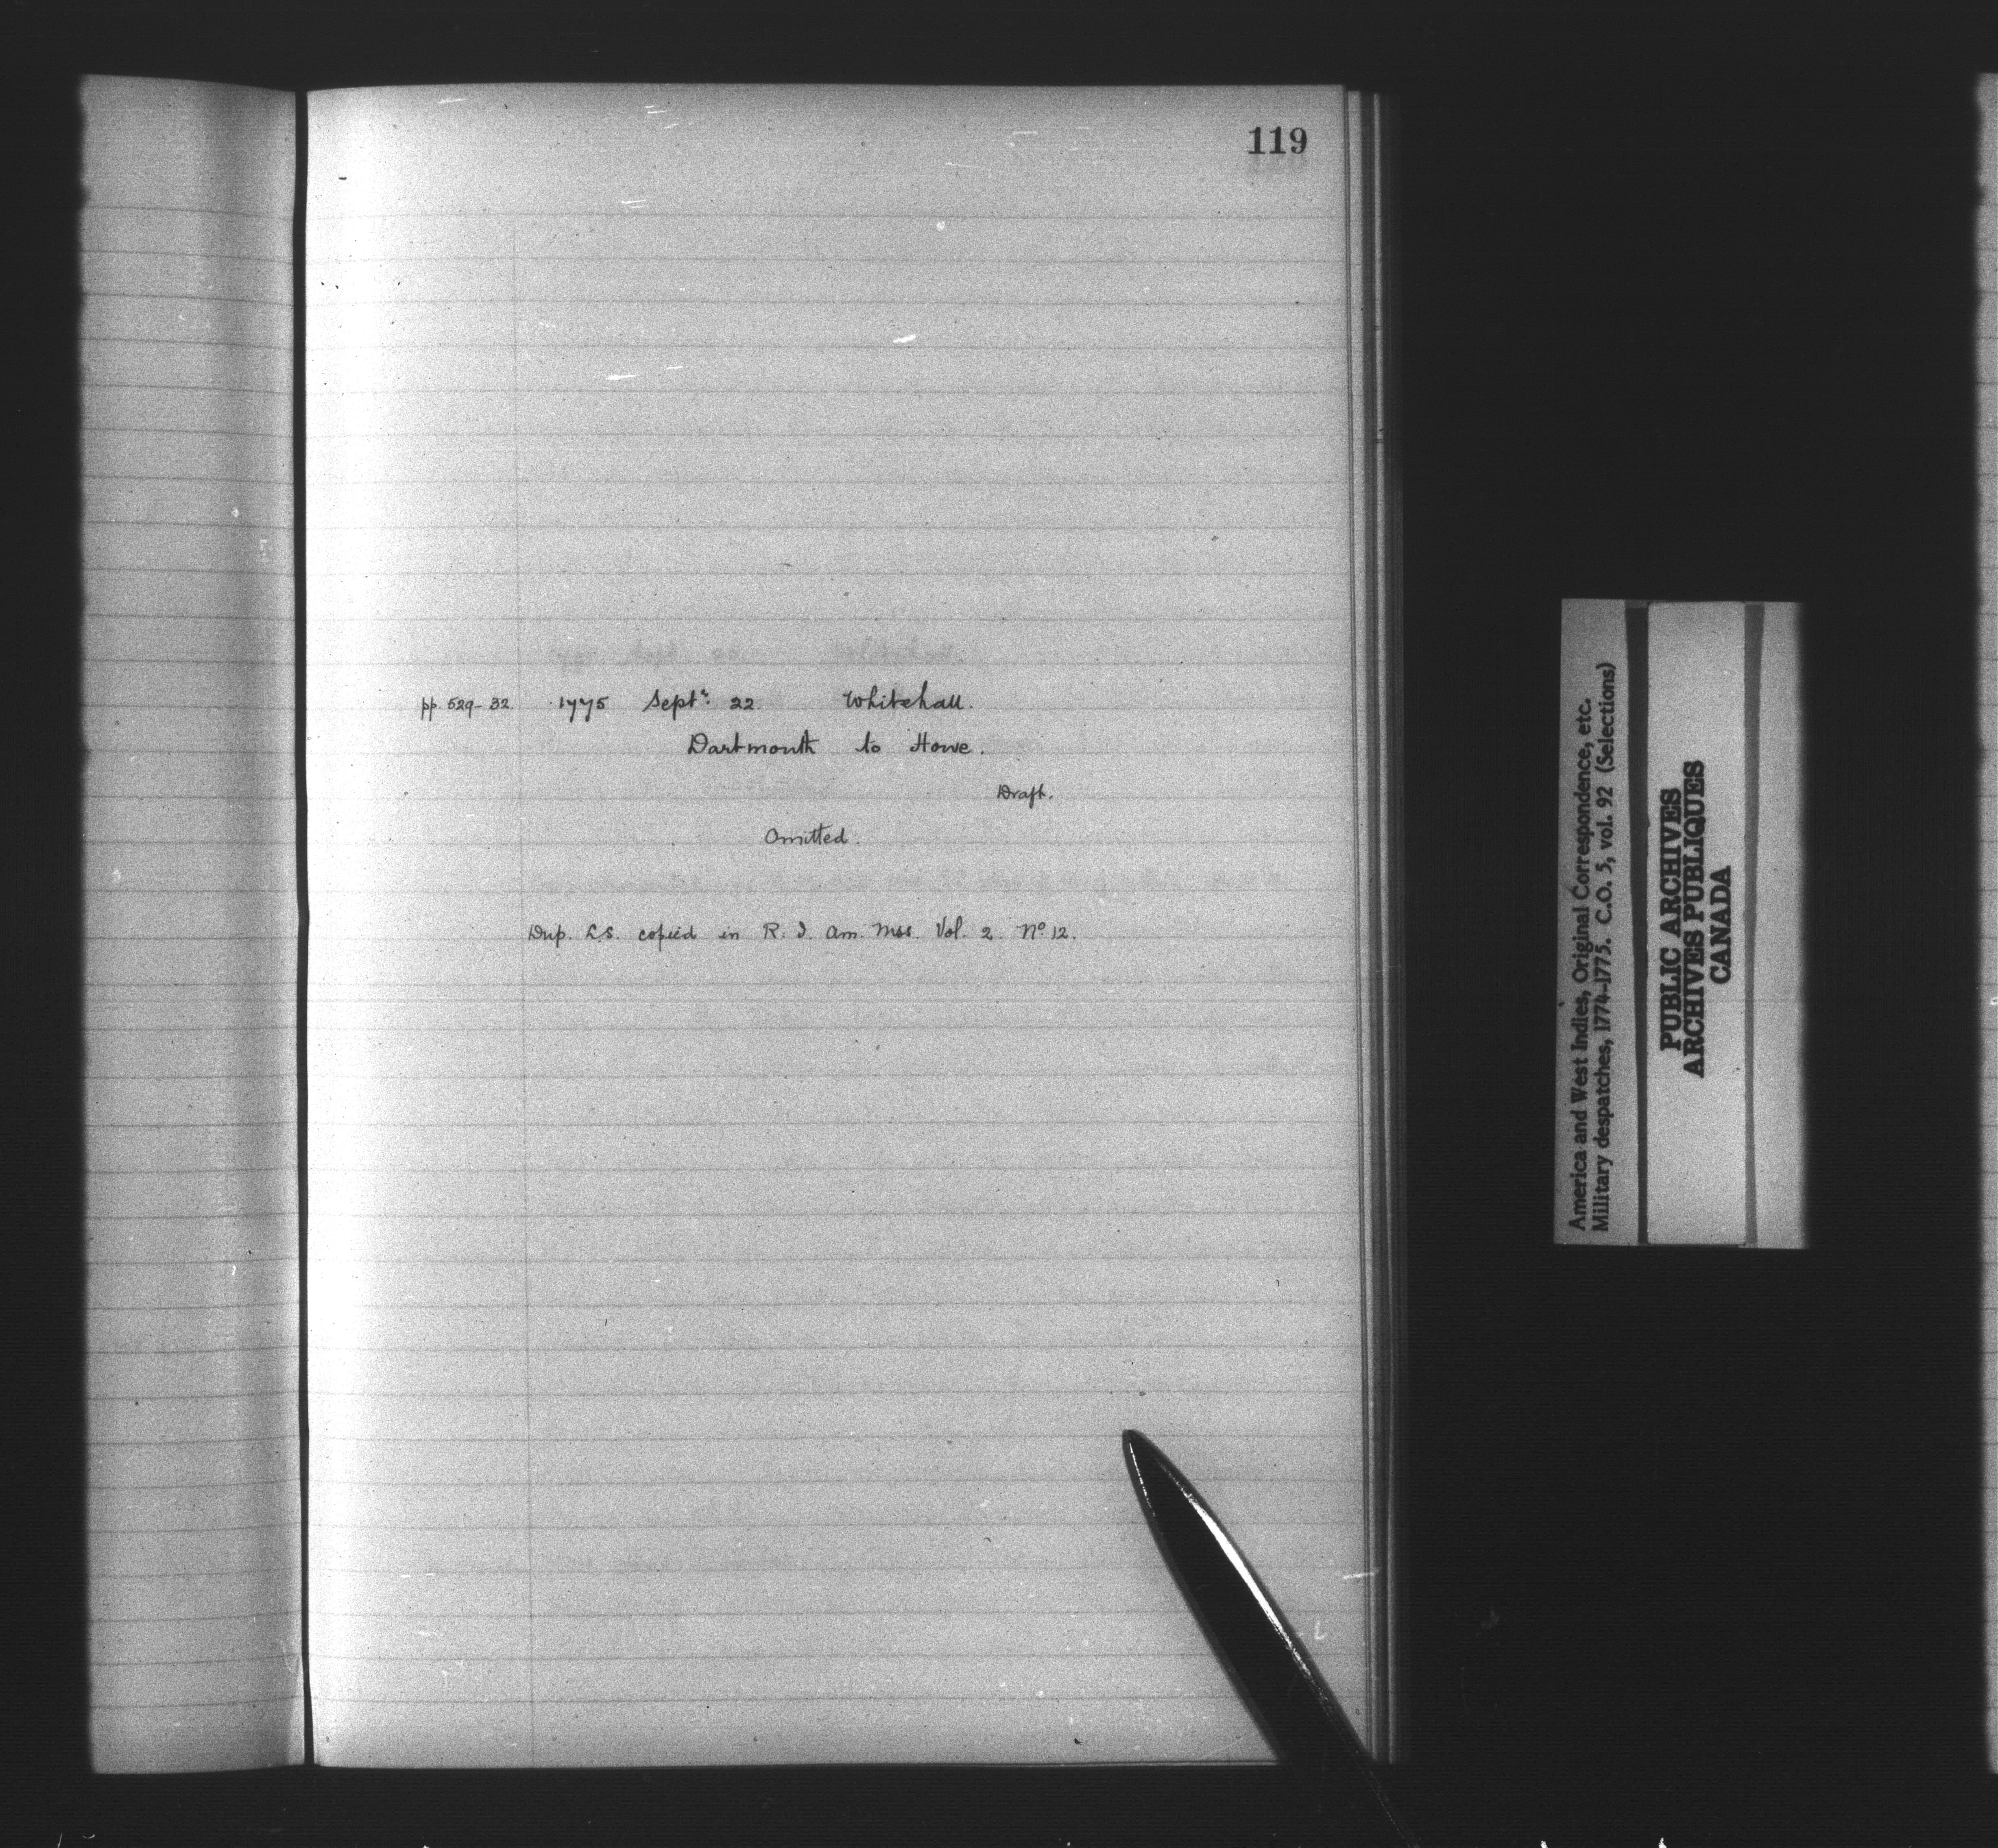 119
pp. 529-32. 1775 Septr. 22. Whitehall.
Dartmouth to Howe.
Draft.
Omitted.
Dup. L.S. copied in R. I. Am. Mss. Vol. 2. No. 12.
America and West Indies, Original Correspondence, etc.
Military despatches, 1774-1775. C.O. 5, vol. 92 (Selections)
PUBLIC ARCHIVES
ARCHIVES PUBLIQUES
CANADA